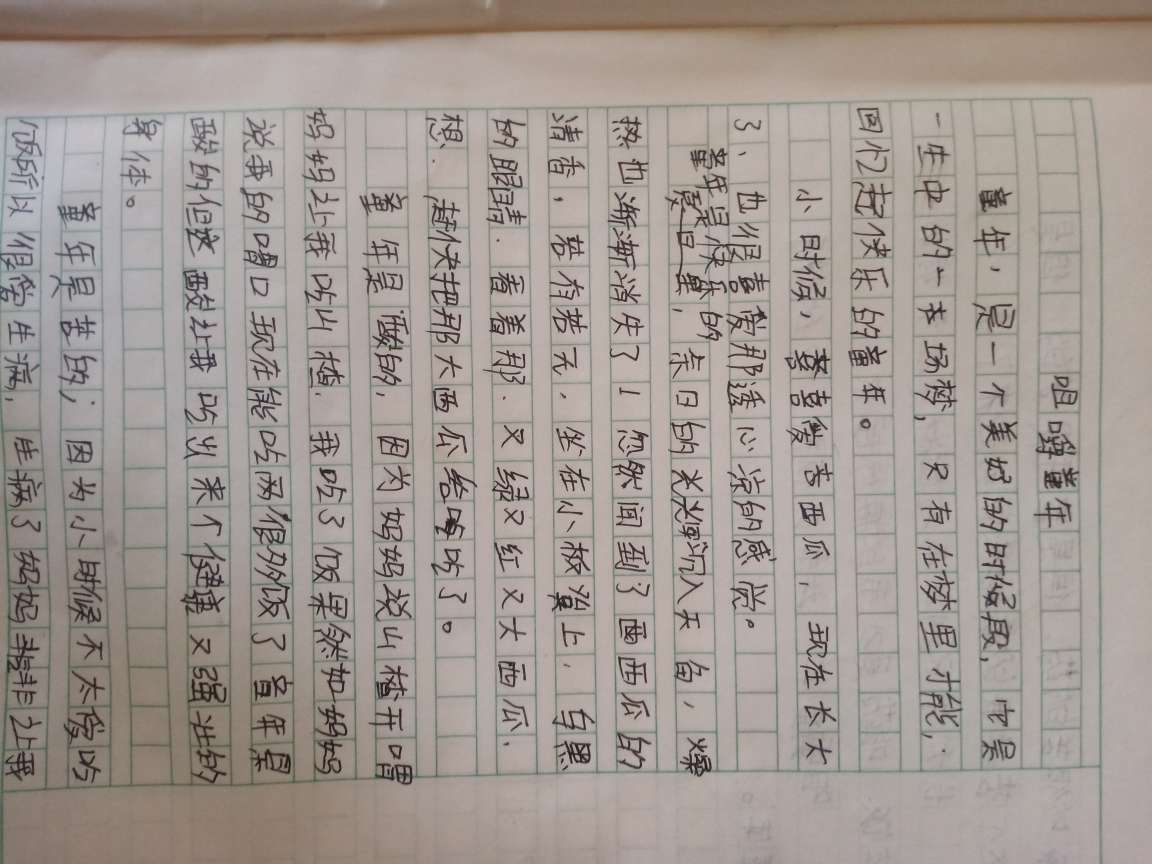 咀嚼童年
童年，是一个美好的时候段，它是
一生中的一本场梦，只有在梦里才能，
回忆起快乐的童年。
小时候，喜喜爱吝西瓜，现在长大
了、也很喜爱那透心凉的感觉。
童年是快乐的
夏日里，余日的光光辉沉入天台，燥
热也渐渐消失了！忽然间到了面西瓜的
清香，若有若无，坐在小板凳上，乌黑
的眼睛．看着那．又绿又红又大西瓜．
想．赶快把那大西瓜给吃了。
童年是酸的，因为妈妈说山楂开胃
妈妈让我吃山楂．我吃了饭果然如妈妈
说我的胃口现在能吃两很多饭了童年是
酸的但这酸让我吃出来个健康又强壮的
身体。
童年是苦的；因为小时候不太爱吃
饭所以很常生病，生病了妈妈非让我